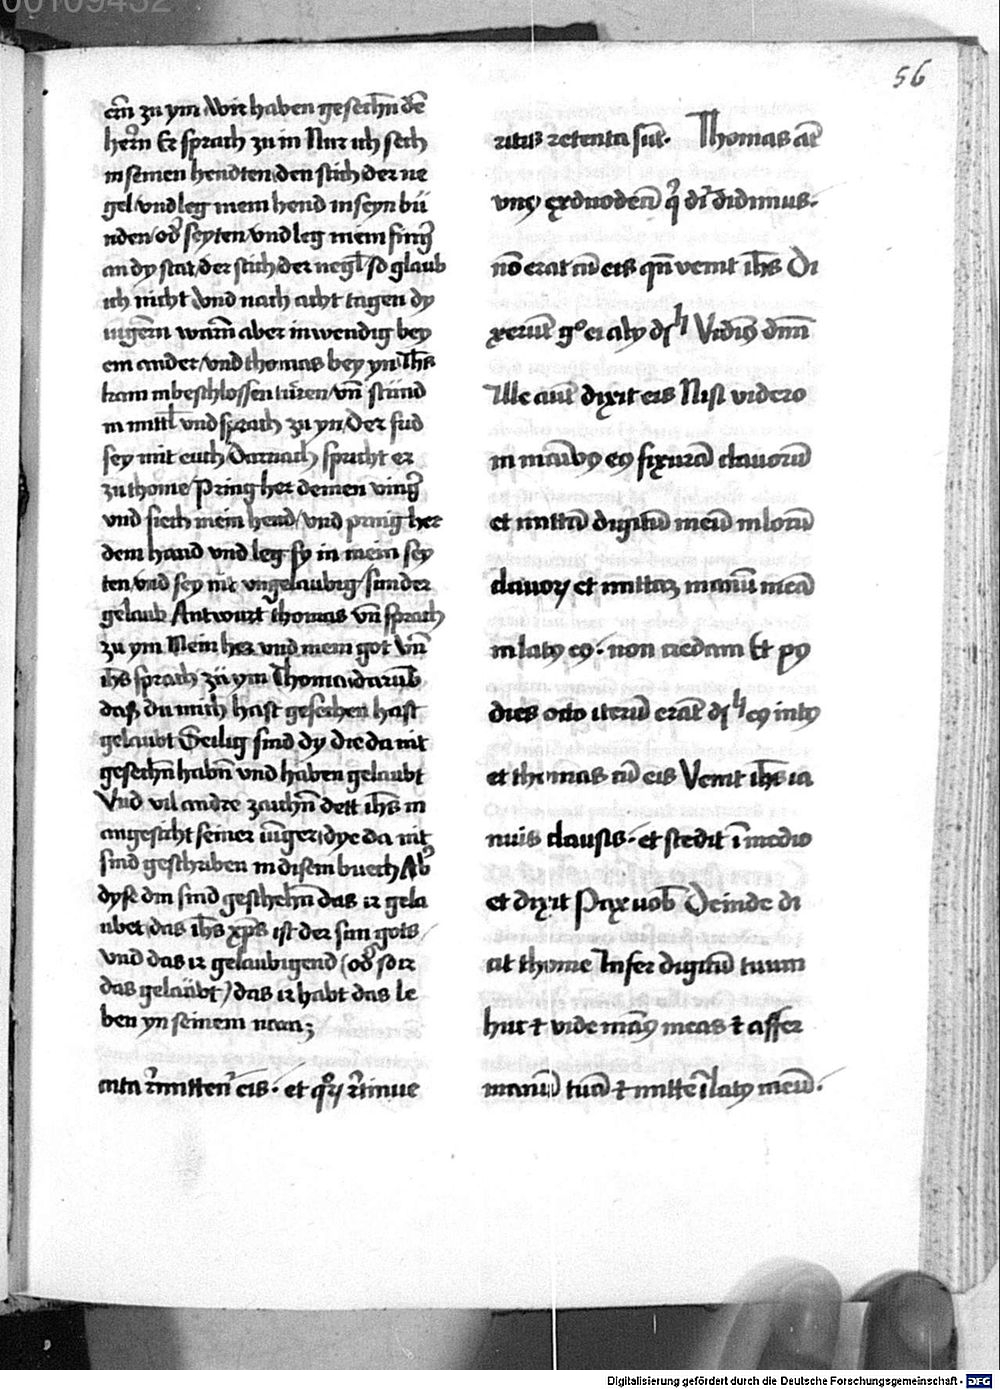 00109432
56
em zu ym Wir haben gesechn̄ dē
hern̄ Er sprach zu in Nur ich sech
in seinen hendten den stich der ne
gel vnd leg mein hend in seyn bü
nden od̕ seyten vnd leg mein fing̕
an dy stat der stich der negl̄ so glaub
ich nicht Vnd nach acht tagen dy
iūgern warn̄ aber inwendig bey
ein ander vnd thomas bey yn Ih̄s
kam in beschlossen türen vn̄ stund
in mittl̄ vnd sprach zu yn Der frid
sey mit euch Darnach spricht er
zu thome Pring her deinen ving̕
vnd siech mein hend vnd pring her
dein hand vnd leg sy in mein sey
ten vnd sey nit vngelaubig sunder
gelaub Antwurt thomas vn̄ sprach
zu ym Mein her vnd mein got Vn̄
ih̄s sprach zü ym Thoma darūb
daß du mich hast gesechen hast
gelaubt Seilig sind dy die da nit
gesechn̄ habn̄ vnd haben gelaubt
Vnd vil andre zaichn̄ dett ih̄s in
angesicht seiner iūger dye da nit
sind geschriben in disem buech Ab̕
dyse din sind geschehn̄ das ir gela
ubet das ih̄s xp̄s ist der sun gots
vnd das ir gelaubigend (od̕ so ir
das gelaubt) das ir habt das le
ben yn seinem nam;
cata r̄mitten̄ eis · et qͦꝝ r̄tinue
ritis retenta sūt · Thomas aūt
vnꝰ ex duodecī q̊ dr̄ didimus ·
nō erat cū eis qn̄ venit ih̄s Di
xerūt gͦ ei alij dſłi Vidimꝰ dn̄m
Ille aut̄ dixit eis Nisi videro
in maībꝰ eꝰ fixurā clauorū
et mittā digitū meū in locū
clauoꝝ et mittaꝫ manū meā
in latꝰ eꝰ · non credam Et pꝰ
dies octo iterū erāt dſłi eꝰ intꝰ
et thomas cū eis Venit ih̄s ia
nuis clausis · et stedit ī medio
et dixit Pax uob̄ Deinde di
cit thome Infer digitū tuum
huc ⁊ vide manꝰ meas ⁊ affer
manū tuā ⁊ mitte ī latꝰ meū ·
Digitalisierung gefördert durch die Deutsche Forschungsgemeinschaft - DFG